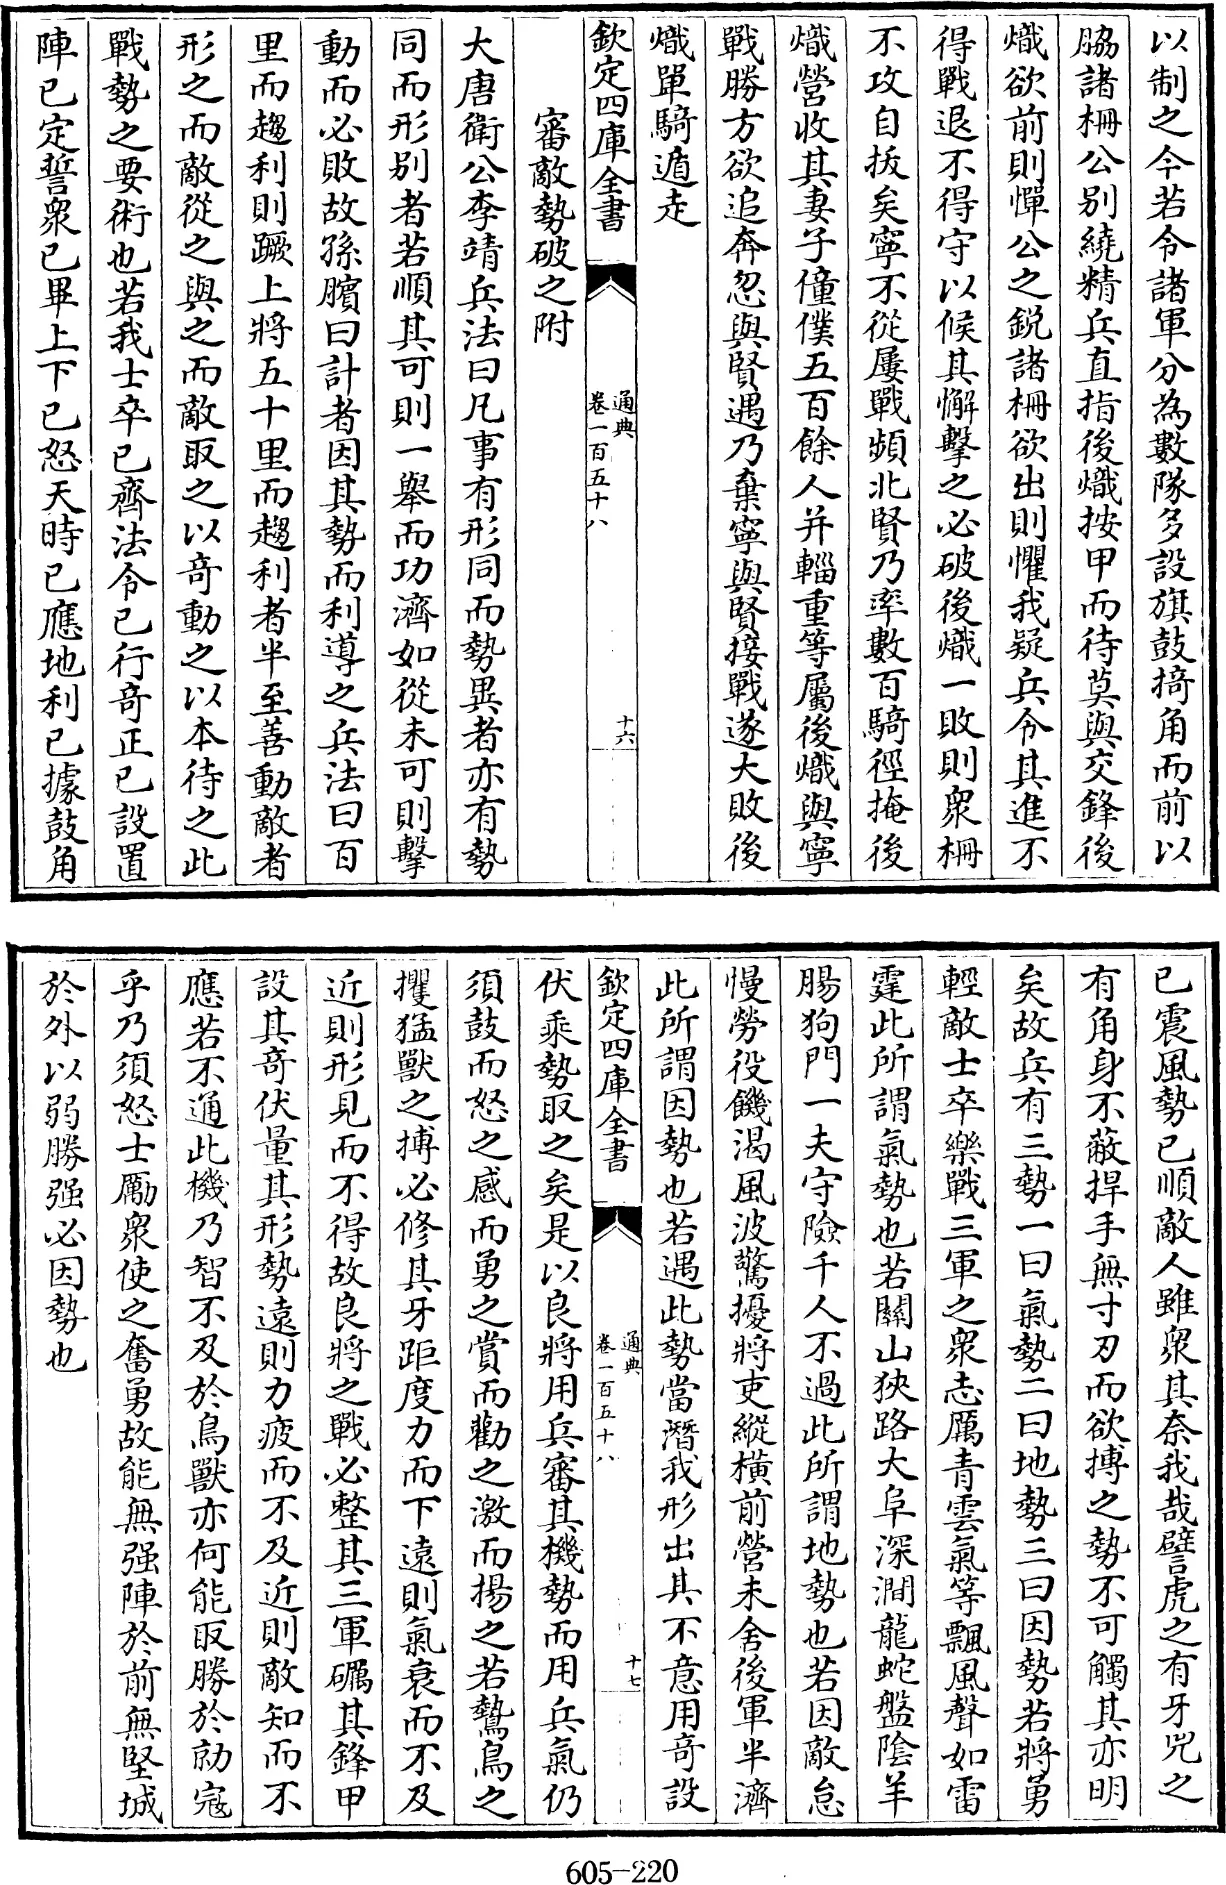 以制之今若令諸軍分為數隊多設旗鼓掎角而前以
脇諸柵公别繞精兵直指後熾按甲而待莫與交鋒後
熾欲前則憚公之鋭諸柵欲出則懼我疑兵令其進不
得戰退不得守以候其懈擊之必破後熾一敗則衆柵
不攻自拔矣寧不從屢戰頻北賢乃率數百騎徑掩後
熾營收其妻子僮僕五百餘人并輜重等屬後熾與寧
戰勝方欲追奔忽與賢遇乃棄寧與賢接戰遂大敗後
熾單騎遁走
欽定四庫全書
通典
卷一百五十八
十六
審敵勢破之附
大唐衛公李靖兵法曰凡事有形同而勢異者亦有勢
同而形别者若順其可則一舉而功濟如從未可則擊
動而必敗故孫臏曰計者因其勢而利導之兵法曰百
里而趨利則蹶上將五十里而趨利者半至善動敵者
形之而敵從之與之而敵取之以奇動之以本待之此
戰勢之要術也若我士卒已齊法令已行奇正已設置
陣已定誓衆已畢上下已怒天時已應地利已據鼓角
已震風勢已順敵人雖衆其奈我哉譬虎之有牙兕之
有角身不蔽捍手無寸刃而欲搏之勢不可觸其亦明
矣故兵有三勢一曰氣勢二曰地勢三曰因勢若將勇
輕敵士卒樂戰三軍之衆志厲青雲氣等飄風聲如雷
霆此所謂氣勢也若關山狹路大阜深澗龍蛇盤陰羊
腸狗門一夫守險千人不過此所謂地勢也若因敵怠
慢勞役饑渴風波驚擾將吏縱横前營未舍後軍半濟
此所謂因勢也若遇此勢當潛我形出其不意用奇設
欽定四庫全書
通典
卷一百五十八
十七
伏乘勢取之矣是以良將用兵審其機勢而用兵氣仍
須鼓而怒之感而勇之賞而勸之激而揚之若鷙鳥之
攫猛獸之搏必修其牙距度力而下遠則氣衰而不及
近則形見而不得故良將之戰必整其三軍礪其鋒甲
設其奇伏量其形勢遠則力疲而不及近則敵知而不
應若不通此機乃智不及於鳥獸亦何能取勝於勍寇
乎乃須怒士厲衆使之奮勇故能無强陣於前無堅城
於外以弱勝强必因勢也
605-220